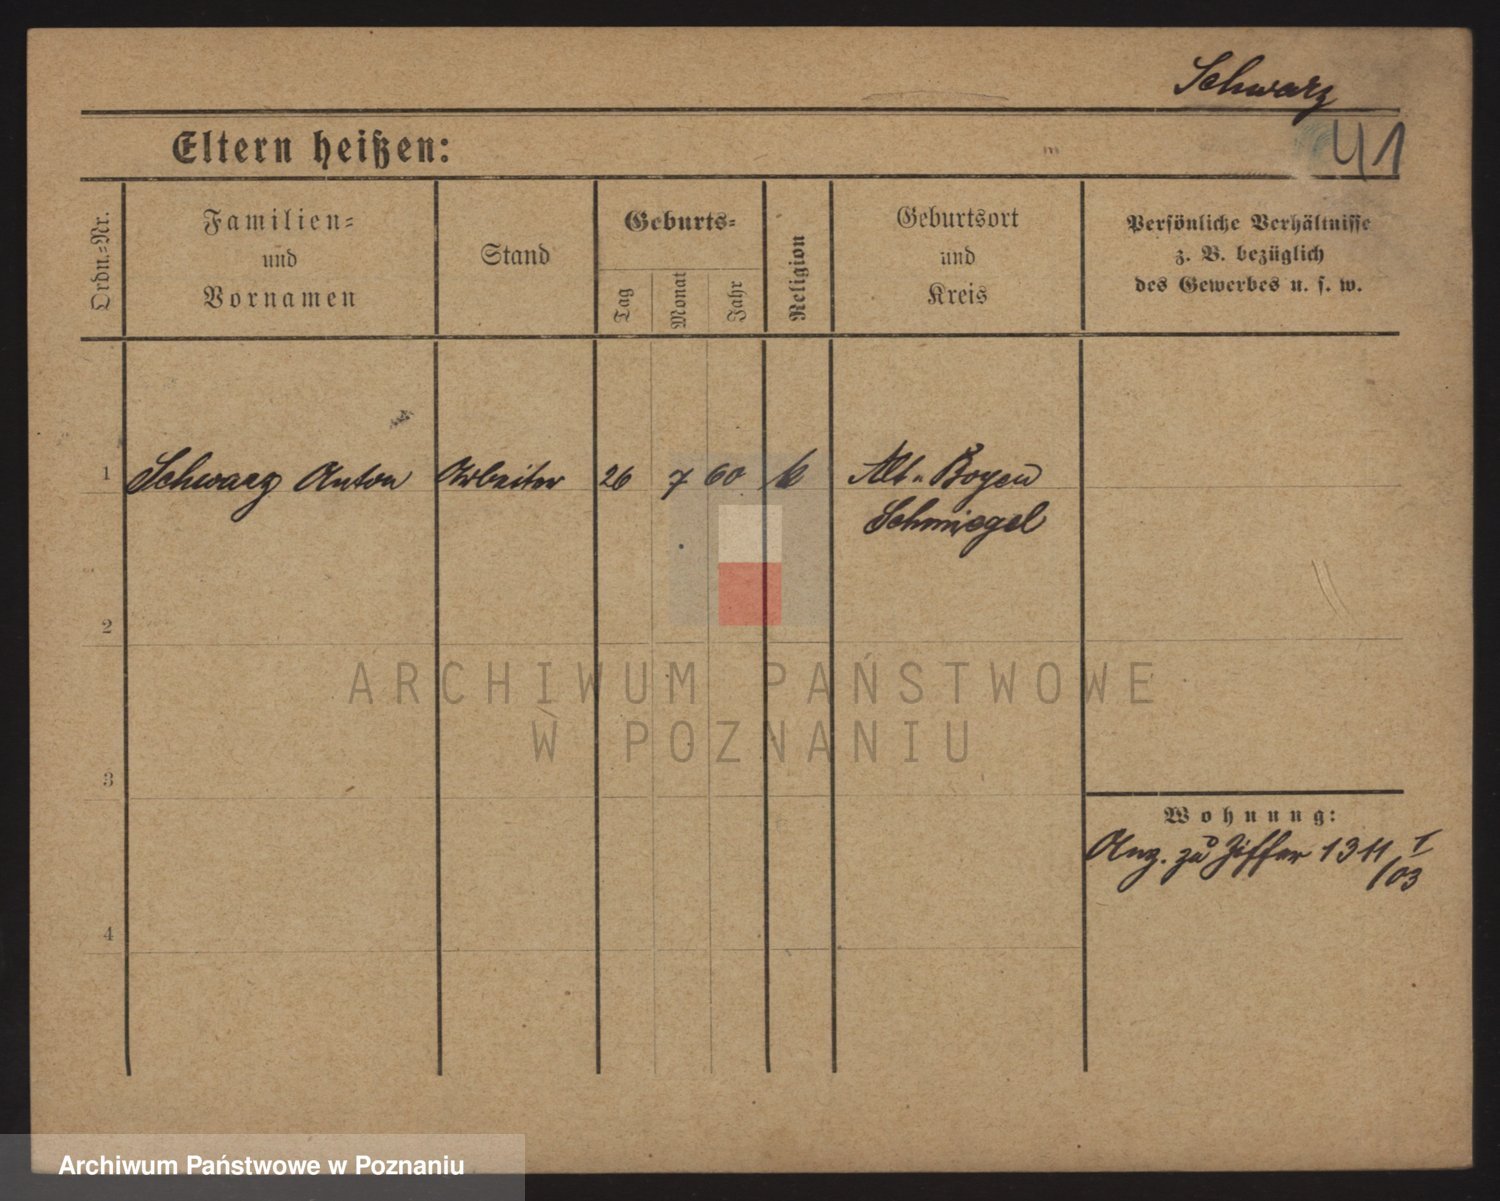 Schwarz
Eltern heißen:
41
Ordn.-Nr.
Familien-
und
Vornamen
Stand
Geburts-
Tag
Monat
Jahr
Religion
Geburtsort
und
Kreis
Persönliche Verhältnisse
z. B. bezüglich
des Gewerbes u. s. w.
1 Schwarz Anton Arbeiter 26 7 60 k Alt-Boyen
Schmiegel
2
ARCHIWUM PAŃSTWOWE
W POZNANIU
3
Wohnung:
Anz. zu Ziffer 1311 I
/03
4
Archiwum Państwowe w Poznaniu